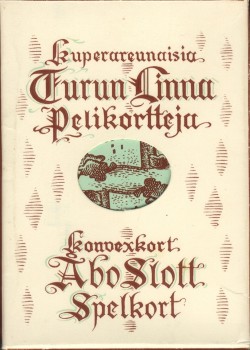 Kuperareunaisia
Turun Linna
Pelikortteja
Konvexkort
Åbo Slott
Spelkort